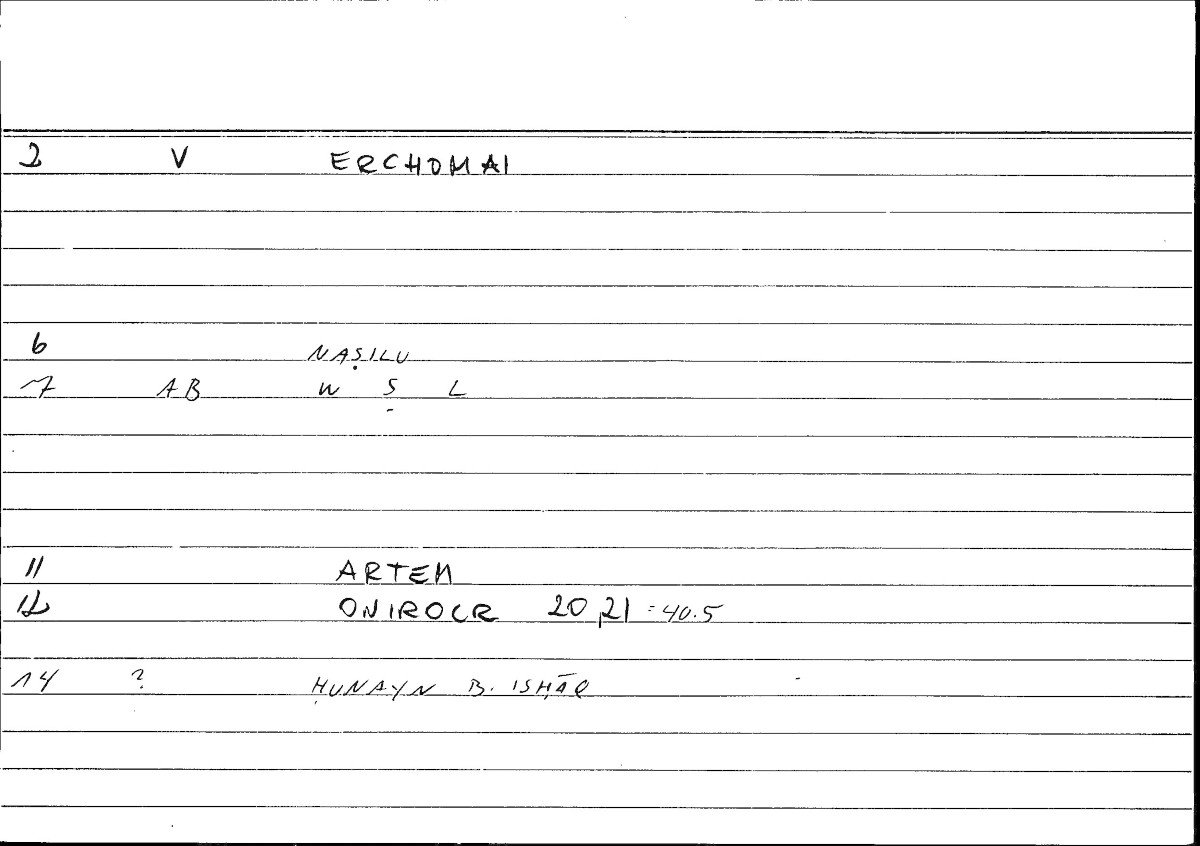 2 V ERCHOMAI
6 NAṢILU
7 AB W Ṣ L
11 ARTEM
12 ONIROCR 20,21 = 40.5
14 ? ḤUNAYN B. ISḤĀQ